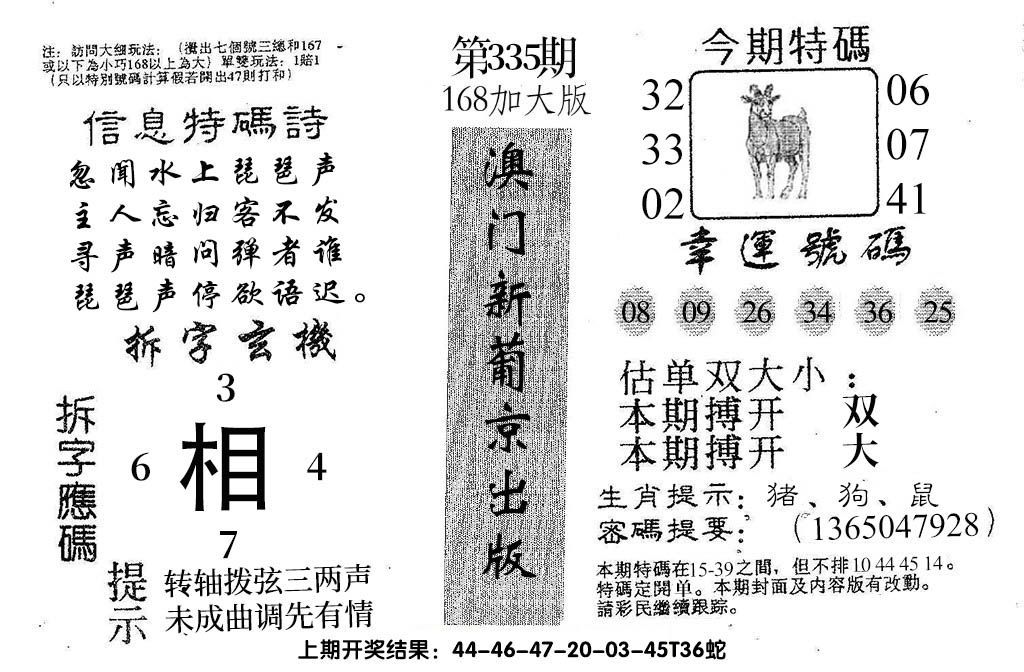 注：訪問大细玩法：（攪出七個號三總和167
或以下為小巧168以上為大）單雙玩法：1賠1
（只以特別號碼計算假若開出47則打和）
信息特碼詩
忽闻水上琵琶声
主人忘归客不发
寻声暗问弹者谁
琵琶声停欲语迟。
拆字玄機
拆字應碼
3
6 相 4
7
提示
转轴拨弦三两声
未成曲调先有情
第335期
168加大版
澳门新葡京出版
今期特碼
32 06
33 07
02 41
幸運號碼
08 09 26 34 36 25
估单双大小：
本期搏开 双
本期搏开 大
生肖提示：猪、狗、鼠
密碼提要：（1365047928）
本期特碼在15-39之間，但不排10 44 45 14。
特碼定開单。本期封面及内容版有改動。
請彩民繼續跟踪。
上期开奖结果：44-46-47-20-03-45T36蛇